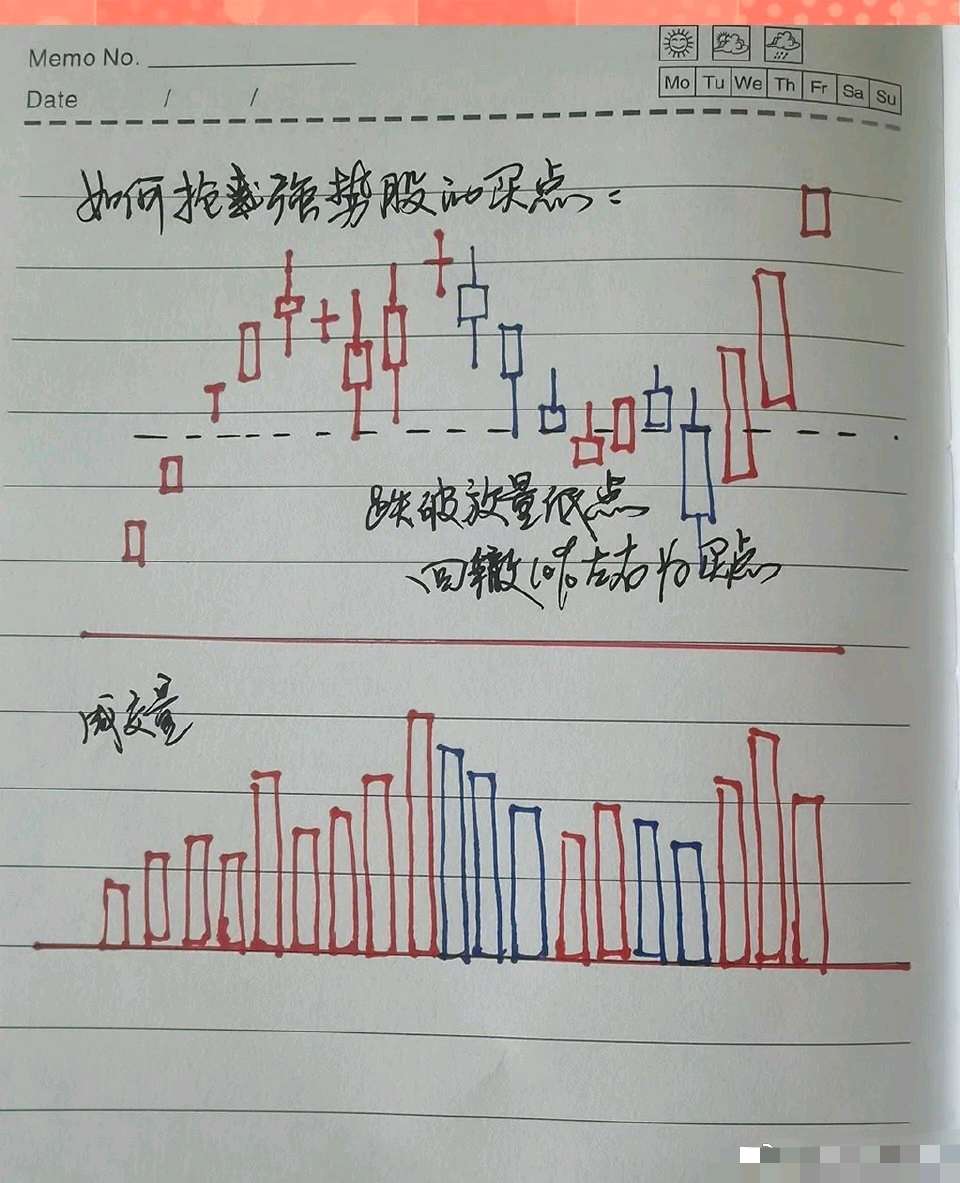 Memo No.
Date / /
Mo Tu We Th Fr Sa Su
如何抢截强势股的买点：
跌破放量低点
回撤10%左右为买点
成交量